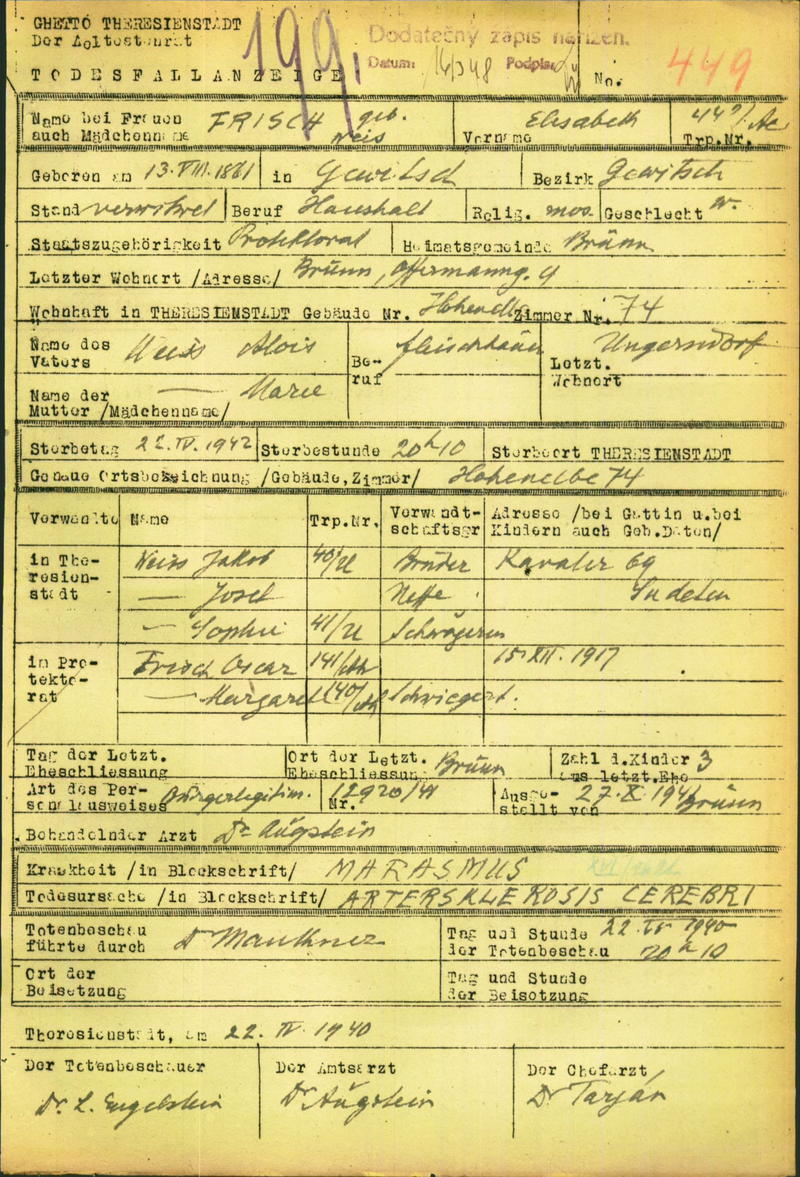 GHETTO THERESIENSTADT
Der Aeltestenrat
TODESFALLANZEIGE
199
Dodatečný zápis nařízen.
Datum: Podpis:
No. 449
Name bei Frauen auch Mädchenname FRISCH geb. Weis
Vorname Elisabeth
Trp.Nr. 449/Ae
Geboren am 13. VIII. 1861 in Gewitsch Bezirk Gewitsch
Stand verwitwet Beruf Haushalt Relig. mos. Geschlecht w.
Staatszugehörigkeit Protektorat Heimatsgemeinde Brünn
Letzter Wohnort /Adresse/ Brünn, Offermanng. 9
Wohnhaft in THERESIENSTADT Gebäude Nr. Hohenelbe Zimmer Nr. 74
Name des Vaters Weiss Alois
Beruf
Letzt. Wohnort Ungerndorf
Name der Mutter /Mädchenname/ — Marie
Sterbetag 22. IV. 1942 Sterbestunde 20h10 Sterbeort THERESIENSTADT
Genaue Ortsbezeichnung /Gebäude, Zimmer/ Hohenelbe 74
Verwandte Name Trp.Nr. Verwandtschaftsgr Adresse /bei Gattin u.bei Kindern auch Geb.Daten/
in Theresienstadt
Weiss Jakob Bruder Kavalir 69
— Josef Neffe Sudeten
— Sophie Schwägerin
in Protektorat
Frisch Oscar 15. XII. 1917
— Margaret Schwiegert.
Tag der Letzt. Eheschliessung
Ort der Letzt. Eheschliessung Brünn
Zahl d.Kinder aus letzt.Ehe 3
Art des Personalausweises Bürgerlegitim. Nr. 12920/41 Ausgestellt von 27. X. 1941 Brünn
Behandelnder Arzt Dr Augstein
Krankheit /in Blockschrift/ MARASMUS
Todesursache /in Blockschrift/ ARTERSKLEROSIS CEREBRI
Totenbeschau führte durch
Tag und Stunde der Totenbeschau 22. IV. 1940 20h10
Ort der Beisetzung
Tag und Stunde der Beisetzung
Theresienstadt, am 22. IV. 1940
Der Totenbeschauer Der Amtsarzt Der Chefarzt
Dr. L. Engelstein Dr Augstein Dr Tarján